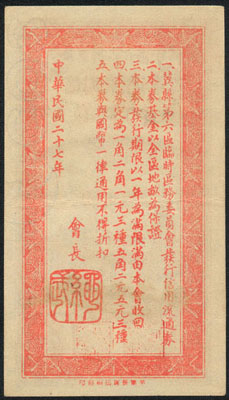 一滑縣第六區臨時區務委員會發行信用流通券
二本券基金以全區地畝為保證
三本券發行期限以一年為滿限滿由本會收回
四本券定為一角二角一元三種五角二元五元三種
五本券與國幣一律通用不得折扣
會長
中華民國二十七年